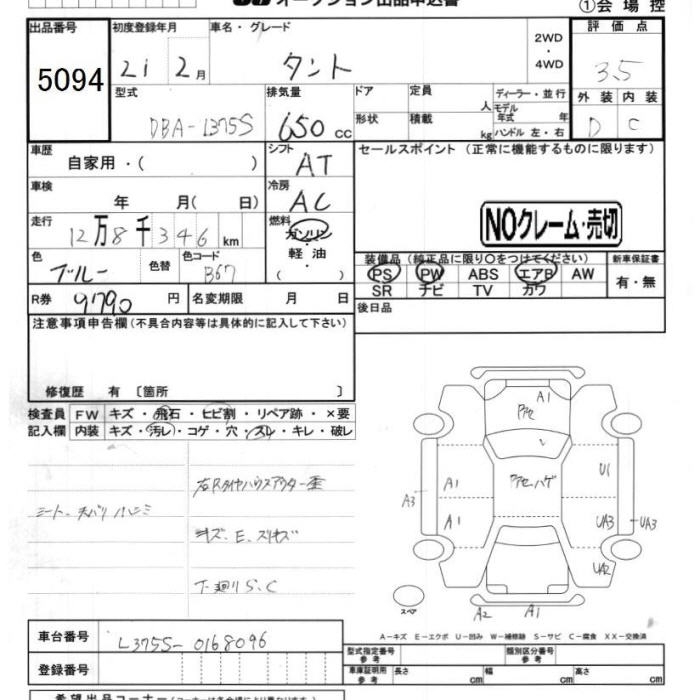 オークション出品申込書 ①会場控
出品番号 初度登録年月 車名・グレード 2WD・4WD 評価点
5094 21 2月 タント 3.5
型式 排気量 ドア 定員 人 ディーラー・並行 外装 内装
DBA-L375S 650 cc 形状 積載 kg モデル年式 年 ハンドル 左・右 D C
車歴 自家用・( ) シフト AT セールスポイント (正常に機能するものに限ります)
車検 年 月( 日) 冷房 AC
NOクレーム・売切
走行 12万8千346km 燃料 ガソリン 軽油 ( )
色 ブルー 色替 色コード B67
装備品 (純正品に限り○をつけてください) 新車保証書
PS PW ABS エアB AW 有・無
SR ナビ TV カワ
R券 9790円 名変期限 月 日 後日品
注意事項申告欄(不具合内容等は具体的に記入して下さい)
修復歴 有 〔箇所 〕
検査員 FW キズ・飛石・ヒビ割・リペア跡・×要
記入欄 内装 キズ・汚レ・コゲ・穴・スレ・キレ・破レ
右Rタイヤハウスアウター歪
キズ、E、スリキズ
下廻りS、C
A1
アセ
アセハゲ
U1
A1
A3
A1
UA3
UA3
UA2
スペア
A2 A1
A-キズ E-エクボ U-凹み W-補修跡 S-サビ C-腐食 XX-交換済
車台番号 L375S-0168096
型式指定番号 参考 類別区分番号 参考
登録番号 車庫証明用 参考 長さ cm 幅 cm 高さ cm
希望出品コーナー